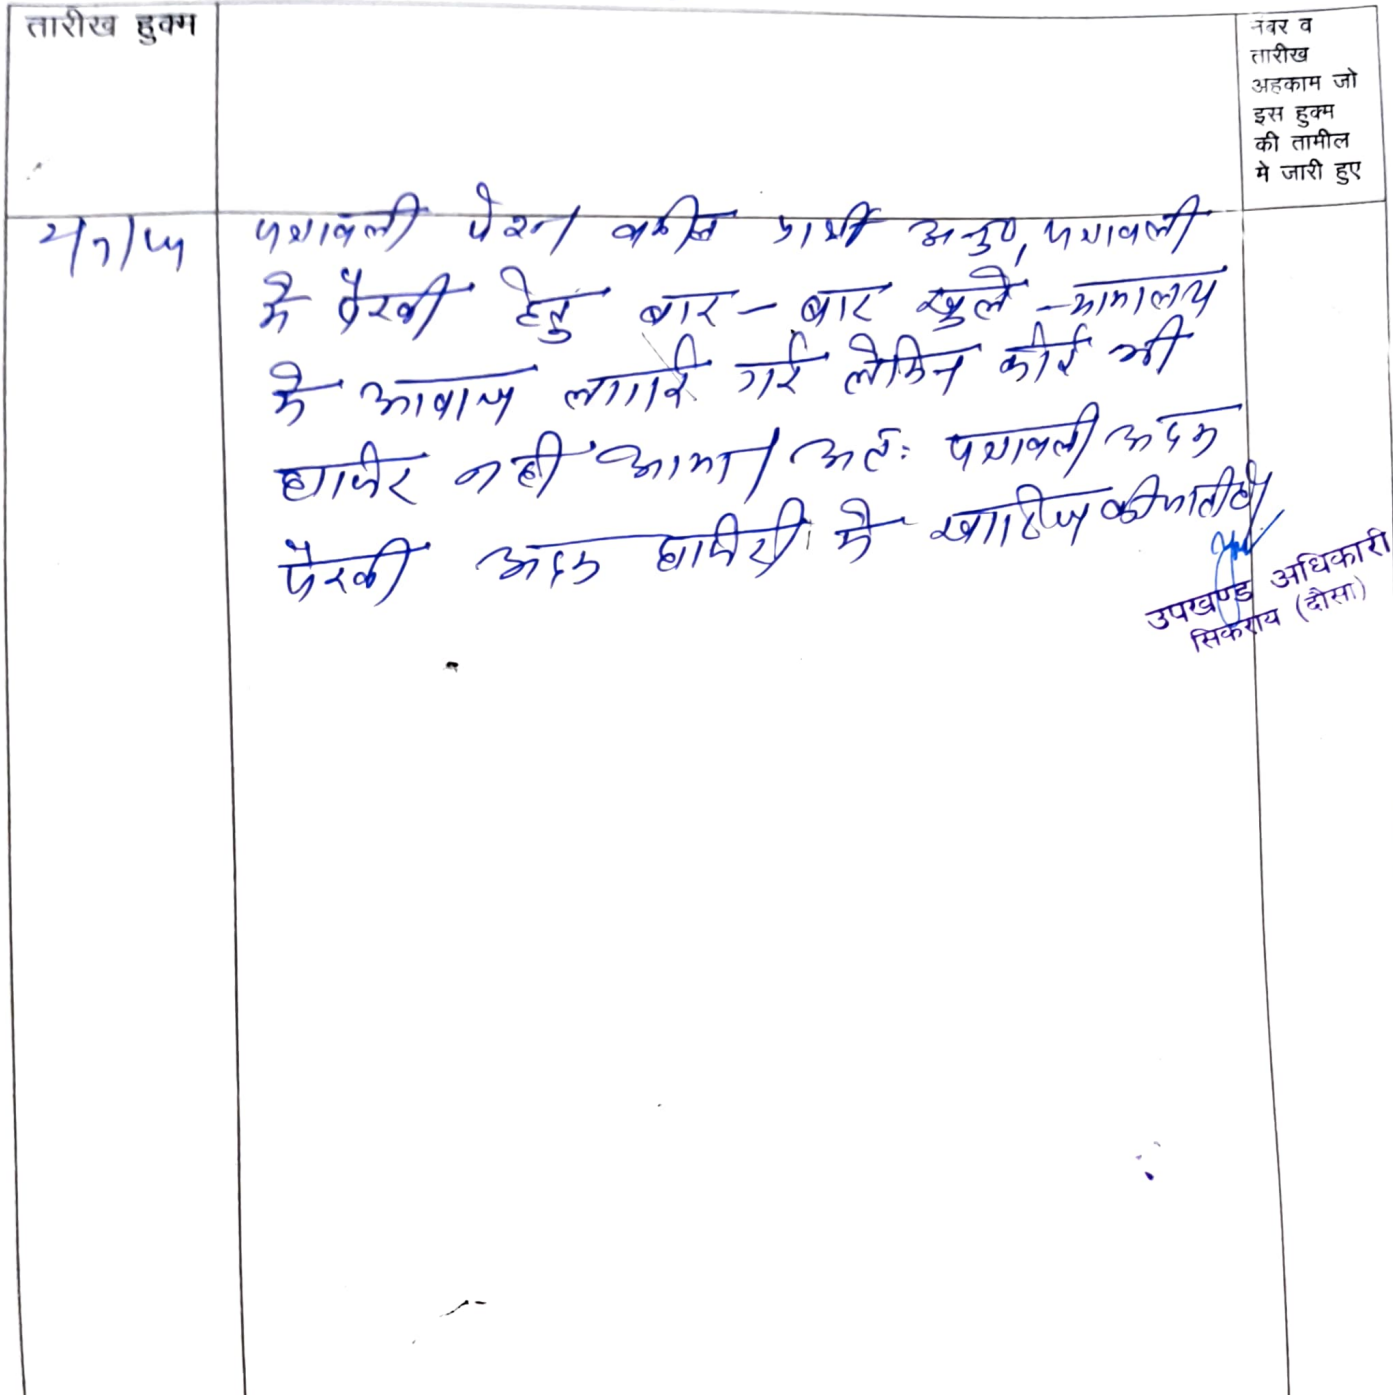 तारीख हुक्म
नंबर व
तारीख
अहकाम जो
इस हुक्म
की तामील
मे जारी हुए
पत्रावली पेश। वकील प्रार्थी अनु०, पत्रावली
मे पैरवी हेतु बार - बार खुले न्यायालय
मे आवाज लगाई गई लेकिन कोई भी
हाजिर नही आया। अतः पत्रावली अदम
पैरवी अदम हाजिरी मे खारिज की जाती है।
उपखण्ड अधिकारी
सिकराय (दौसा)